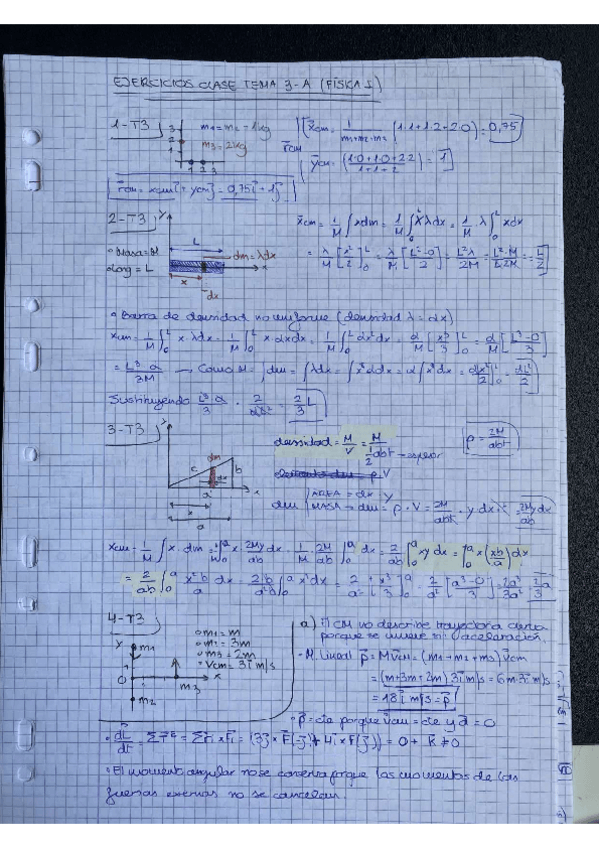 EJERCICIOS CLASE TEMA 3-A (FÍSIKA I)
1-T3
3
2
1
1 2 3
m1=m2=1kg
m3=2kg
rcm
Xcm = 1/(m1+m2+m3) (1·1+1·2+2·0) = 0,75
ycm = (1·0+1·0+2·2)/(1+1+2) = 1
rcm = xcm i + ycm j = 0,75i + 1j
2-T3
y
L
Masa=M
Long=L
dm=λdx
x
x
dx
Xcm = 1/M ∫xdm = 1/M ∫₀ᴸ xλdx = 1/M λ ∫₀ᴸ xdx
= λ/M [x²/2]₀ᴸ = λ/M [L²-0/2] = L²λ/2M = L²·M/L2M = L/2
Barra de densidad no uniforme (densidad λ = αx)
Xcm = 1/M ∫₀ᴸ x·λdx = 1/M ∫₀ᴸ x·αxdx = 1/M ∫₀ᴸ αx²dx = α/M [x³/3]₀ᴸ = α/M [L³-0/3]
= L³α/3M → Como M = ∫dm = ∫λdx = ∫xαdx = α∫xdx = αx²/2]₀ᴸ = αL²/2
Sustituyendo L³α/3 · 2/αL² = 2/3 L
3-T3
y
dm
c
b
dx
a
x
x
a
densidad = M/V = M/(1/2 abt) → espesor
ρ = 2M/abt
dm
AREA = dx y
MASA → dm = ρ·V = 2M/abt · y dx t = 2My dx/ab
Xcm = 1/M ∫x·dm = 1/M ∫₀ᵃ x 2My/ab dx = 1/M 2M/ab ∫₀ᵃ dx = 2/ab ∫₀ᵃ xy dx = ∫₀ᵃ x (xb/a) dx
= 2/ab ∫₀ᵃ x²b/a dx = 2b/a²b ∫₀ᵃ x²dx = 2/a² [x³/3]₀ᵃ = 2/a² [a³-0/3] = 2a³/3a² = 2/3 a
4-T3
m1=m
m2=3m
m3=2m
Vcm=3i m/s
y
m1
0
x
m3
m2
a) El CM no describe trayectoria
porque se mueve sin aceleración
M. Lineal P = MVcm = (m1+m2+m3)Vcm
= (m+3m+2m) 3i m/s = 6m·3i m/s =
= 18i m/s = P
P = cte porque Vcm = cte y a = 0
dL/dt = ΣTᴱ = Σri × Fi = (3j × F(j) + 4i × F(j)) = 0 + K ≠ 0
El momento angular no se conserva porque los momentos de las
fuerzas externas no se cancelan.